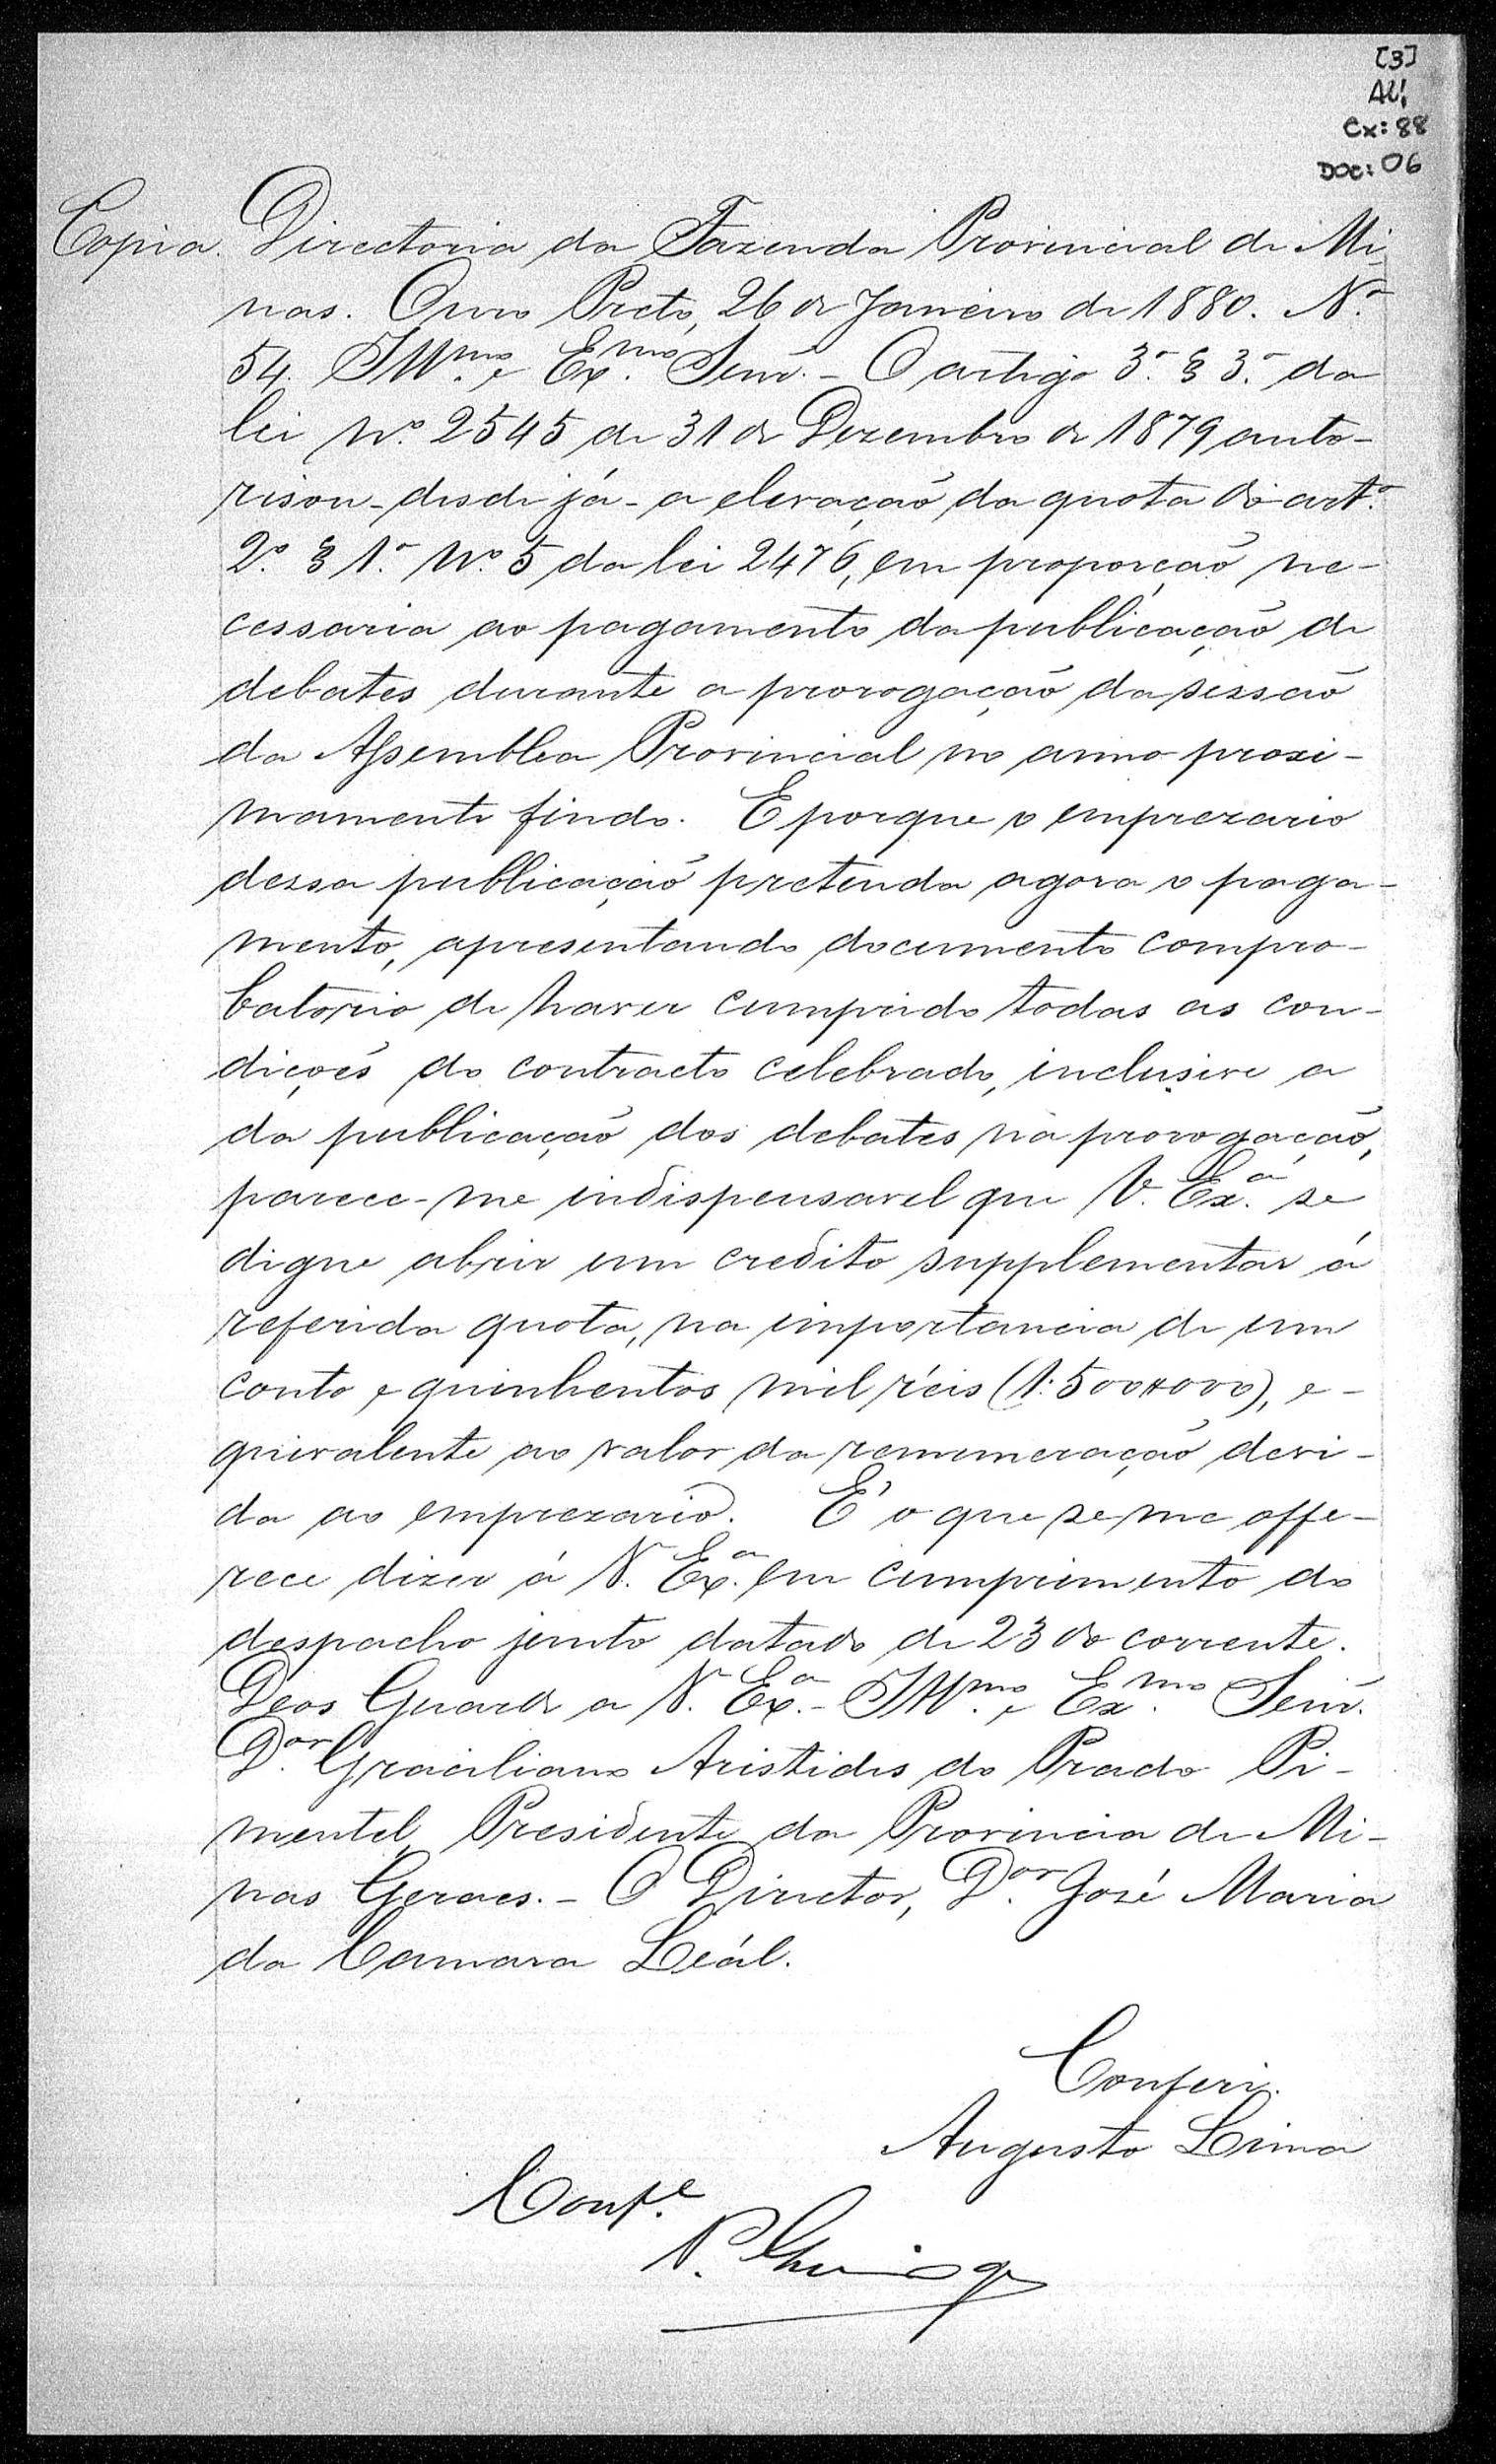 [3]
AL!
Cx: 88
DOC: 06
Copia. Directoria da Fazenda Provincial de Mi-
nas. Ouro Preto, 26 de Janeiro de 1880. Nº
54. Illmo. e Exmo. Senr. – O artigo 3º § 3º da
lei nº 2545 de 31 de Dezembro de 1879 auto-
risou – desde já – a elevação da quota do artº
2º § 1º nº 5 da lei 2476, em proporção ne-
cessaria ao pagamento da publicação de
debates durante a prorogação da sessão
da Assemblea Provincial no anno proxi-
mamente findo. E porque o emprezario
dessa publicação pretenda agora o paga-
mento, apresentando documento compro-
batorio de haver cumprido todas as con-
dições do contracto celebrado, inclusive a
da publicação dos debates na prorogação,
parece-me indispensavel que V. Exª se
digne abrir um credito supplementar á
referida quota, na importancia de um
conto e quinhentos mil réis (1:500#000), e-
quivalente ao valor da remuneração devi-
da ao emprezario. É o que se me offe-
rece dizer á V. Exª em cumprimento do
despacho junto datado de 23 do corrente.
Deos Guarde a V. Exª – Illmo. e Exmo. Senr.
Dor. Graciliano Aristides do Prado Pi-
mentel, Presidente da Provincia de Mi-
nas Geraes. – O Director, Dor. José Maria
da Camara Leál.
Conferi.
Augusto Lima
Confe.